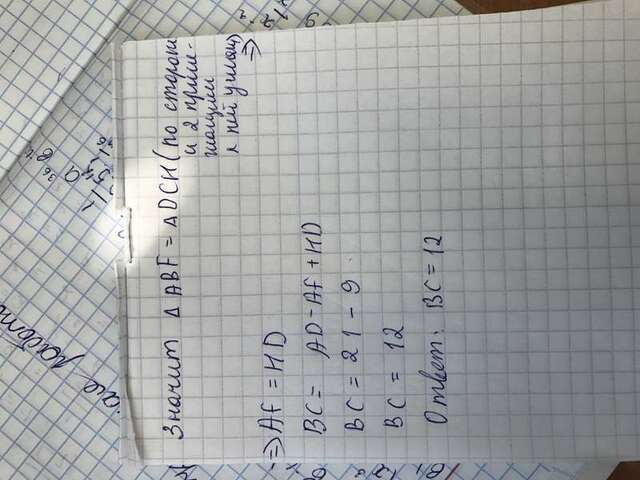 Значит Δ ABF = ΔDCH (по стороне
и 2 приле-
жащим
к ней углам)
⇒
⇒ AF = HD
BC = AD - AF + HD
BC = 21 - 9
BC = 12
Ответ: BC = 12